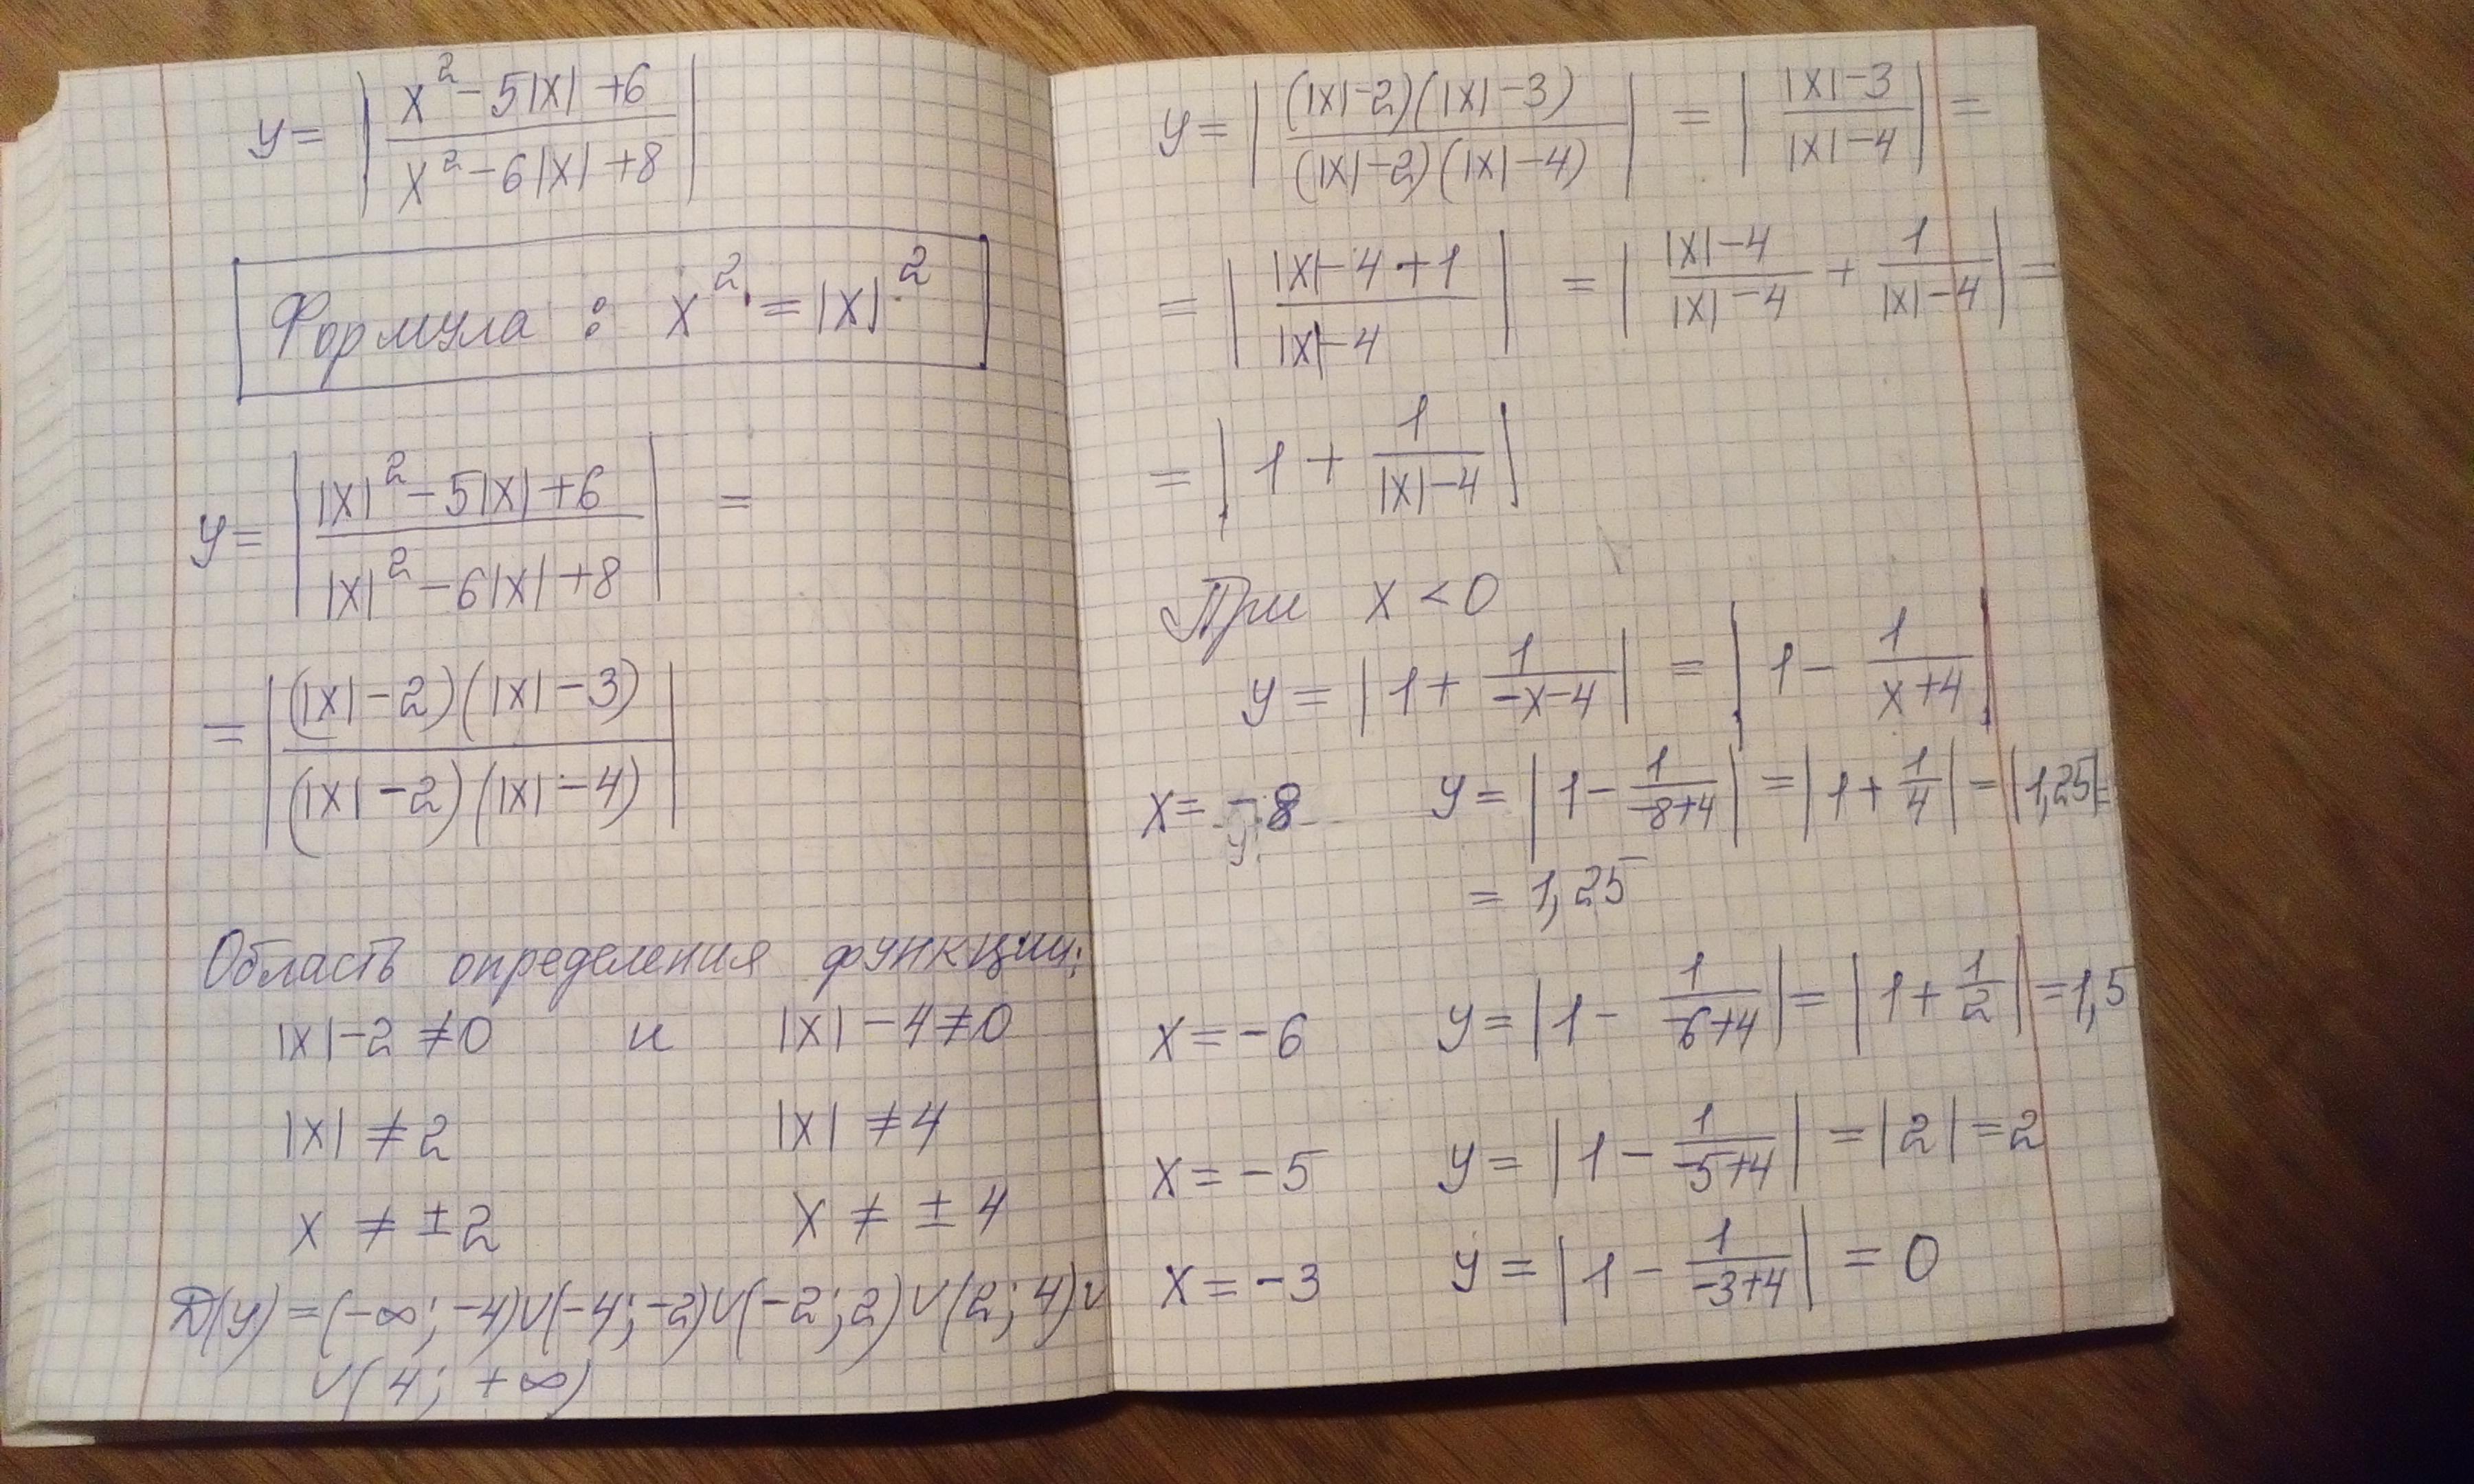 y = | (x² - 5|x| + 6) / (x² - 6|x| + 8) |
Формула : x² = |x|²
y = | (|x|² - 5|x| + 6) / (|x|² - 6|x| + 8) | =
= | (|x| - 2)(|x| - 3) / (|x| - 2)(|x| - 4) |
Область определения функции:
|x| - 2 ≠ 0 и |x| - 4 ≠ 0
|x| ≠ 2 |x| ≠ 4
x ≠ ± 2 x ≠ ± 4
D(y) = (-∞; -4)∪(-4; -2)∪(-2; 2)∪(2; 4)∪
∪(4; +∞)
y = | (|x| - 2)(|x| - 3) / (|x| - 2)(|x| - 4) | = | (|x| - 3) / (|x| - 4) | =
= | (|x| - 4 + 1) / (|x| - 4) | = | (|x| - 4) / (|x| - 4) + 1 / (|x| - 4) | =
= | 1 + 1 / (|x| - 4) |
При x < 0
y = | 1 + 1 / (-x - 4) | = | 1 - 1 / (x + 4) |
x = -8 y = | 1 - 1 / (-8+4) | = | 1 + 1/4 | = |1,25| =
= 1,25
x = -6 y = | 1 - 1 / (-6+4) | = | 1 + 1/2 | = 1,5
x = -5 y = | 1 - 1 / (-5+4) | = |2| = 2
x = -3 y = | 1 - 1 / (-3+4) | = 0